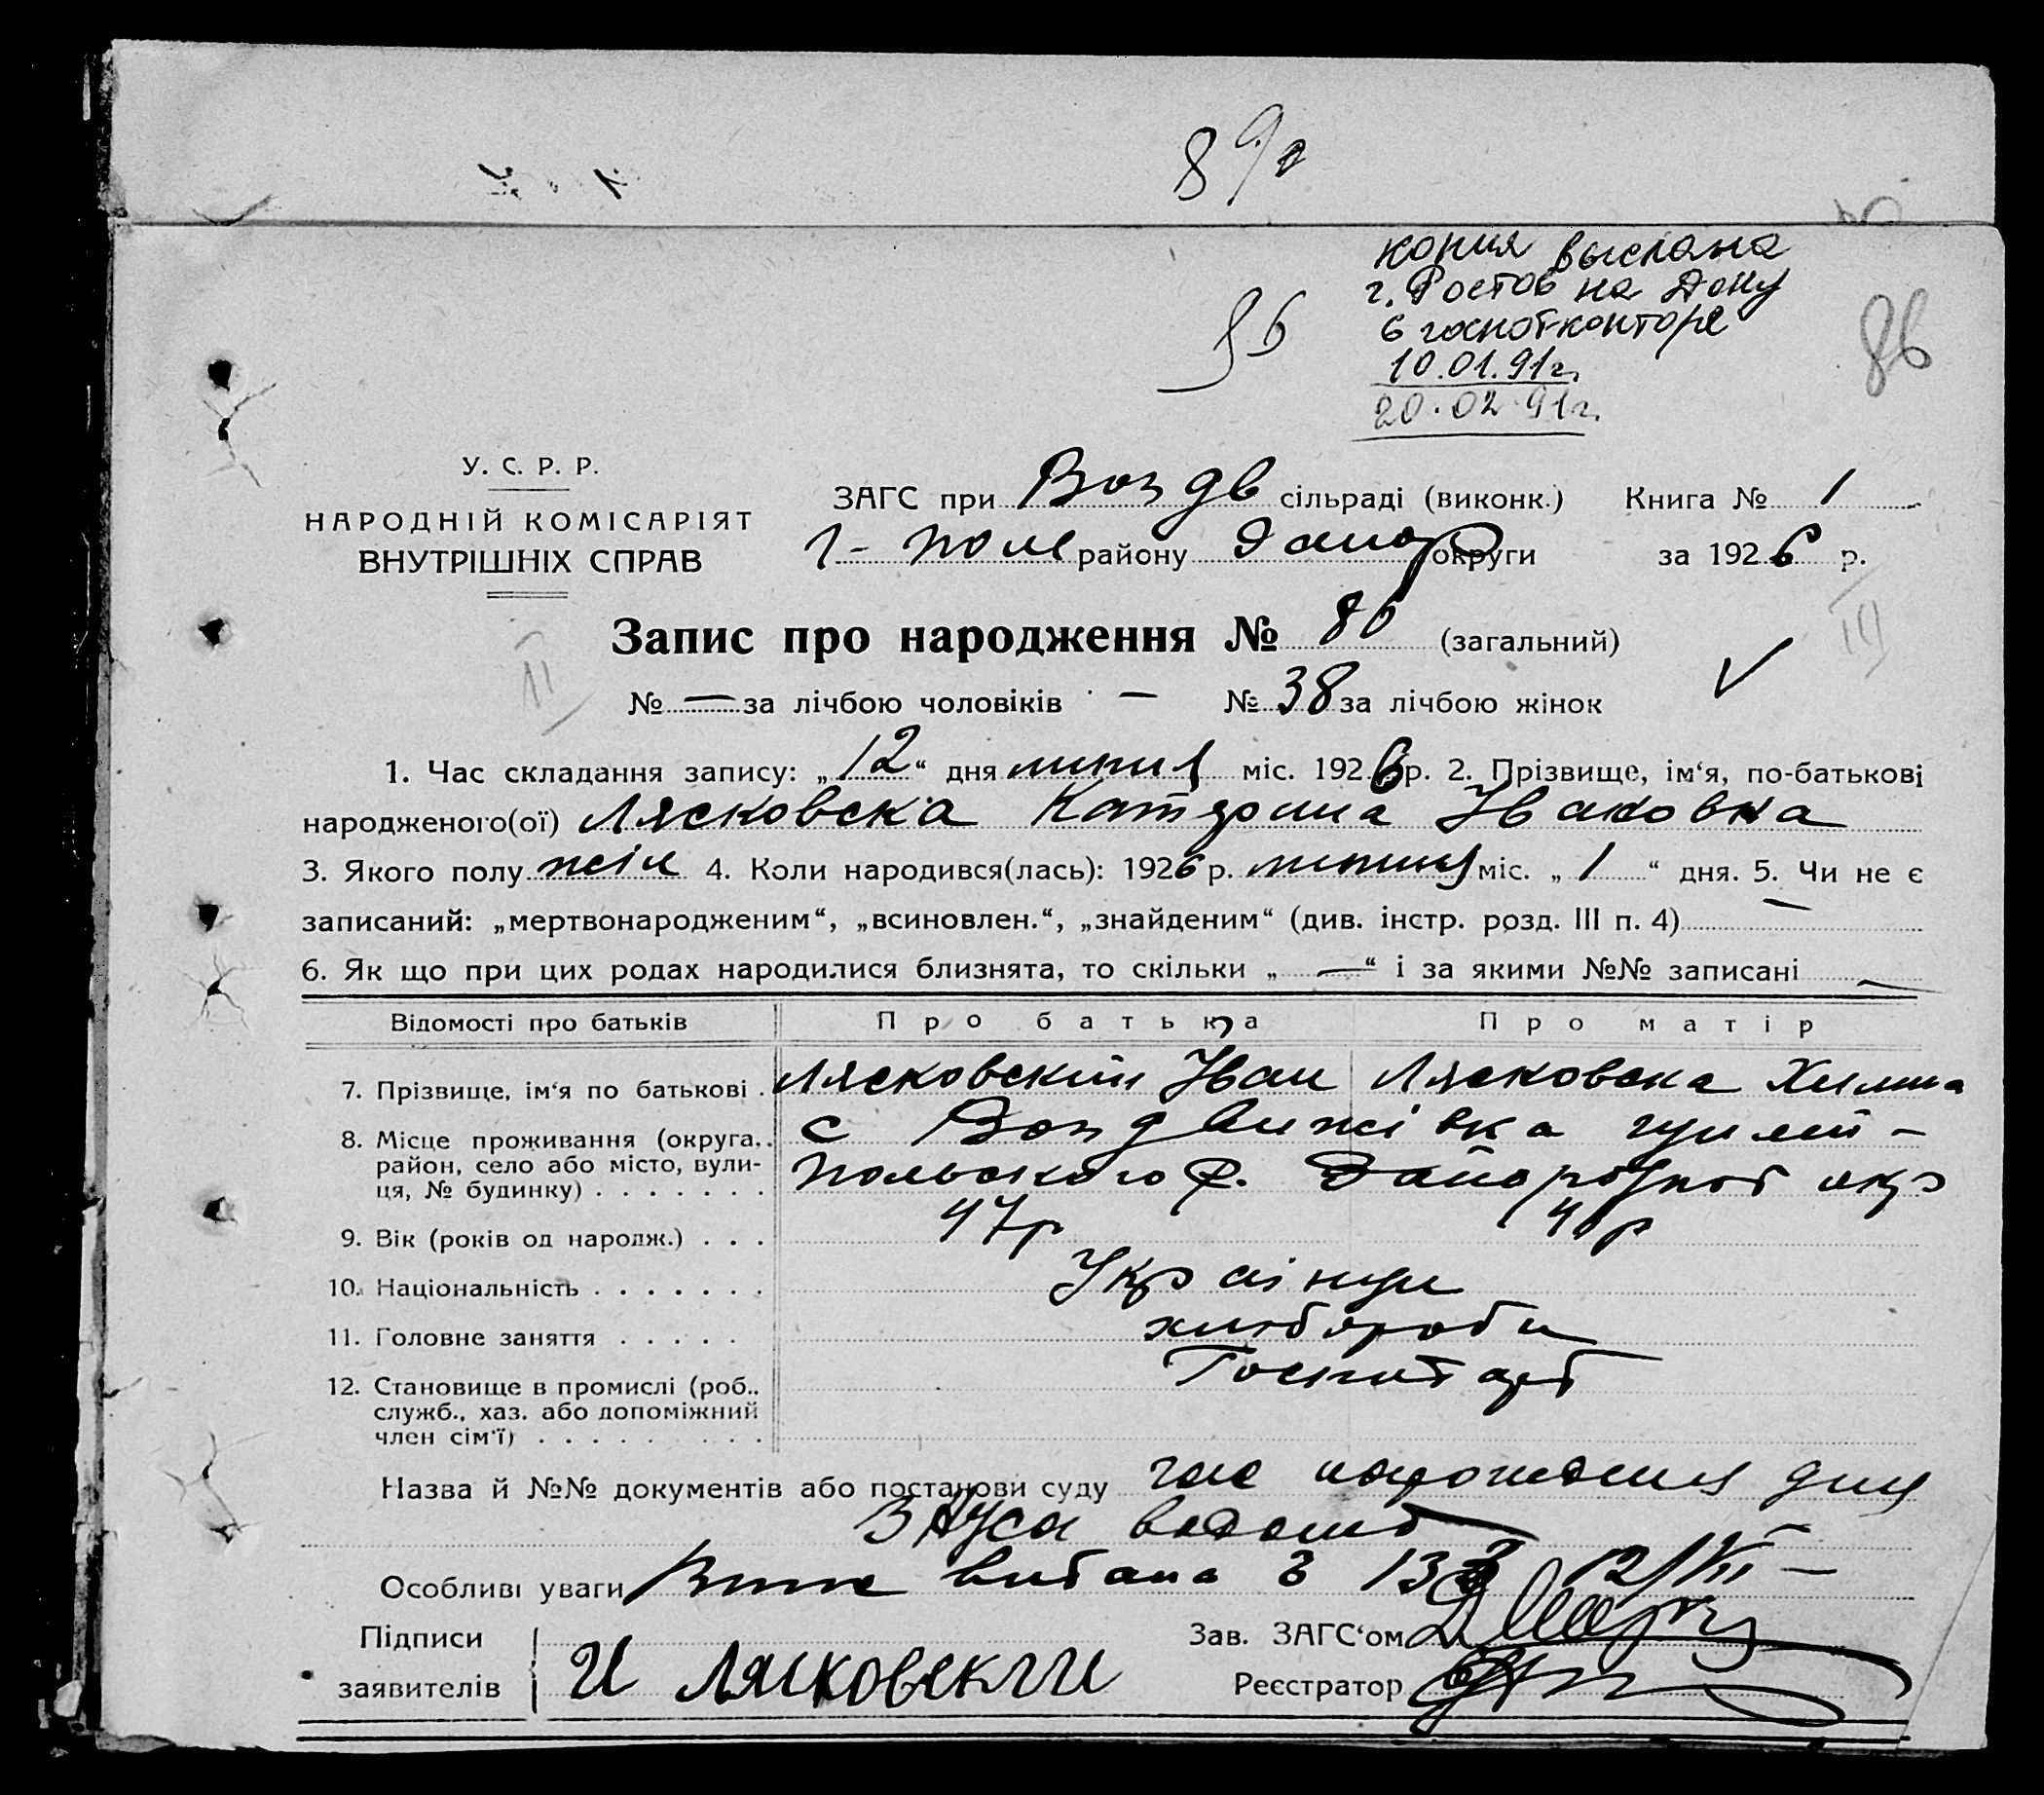 89
копия выслана
г. Ростов на Дону
в госнотконторе
86
10.01.91г.
20.02.91г.
86
У. С. Р. Р.
НАРОДНІЙ КОМІСАРІЯТ
ВНУТРІШНІХ СПРАВ
ЗАГС при Воздв сільраді (виконк.) Книга № 1
Г-Поле району Запор округи за 1926 р.
Запис про народження № 86 (загальний)
II III
№ — за лічбою чоловіків — № 38 за лічбою жінок
1. Час складання запису: „12“ дня липня міс. 1926 р. 2. Прізвище, ім‘я, по-батькові
народженого(ої) Лясковска Катерина Івановна
3. Якого полу жін 4. Коли народився(лась): 1926 р. липня міс. „1“ дня. 5. Чи не є
записаний: „мертвонародженим“, „всиновлен.“, „знайденим“ (див. інстр. розд. III п. 4) —
6. Як що при цих родах народилися близнята, то скільки „—“ і за якими №№ записані —
Відомості про батьків Про батька Про матір
7. Прізвище, ім‘я по батькові . Лясковский Іван Лясковска Химша
8. Місце проживання (округа, район, село або місто, вулиця, № будинку) . . . . . . . с Воздвижівка гуляй-
польского р. Запорізкоі окр
9. Вік (років од народж.) . . . 47р 40р
10. Національність . . . . . . . Українци
11. Головне заняття . . . . . хлібороби
12. Становище в промислі (роб., служб., хаз. або допоміжний член сім‘ї) . . . . . . . . .
Назва й №№ документів або постанови суду час народження дня
Особливі уваги видана з 12/VII —
Підписи
заявителів И Лясковский
Зав. ЗАГС‘ом
Реєстратор